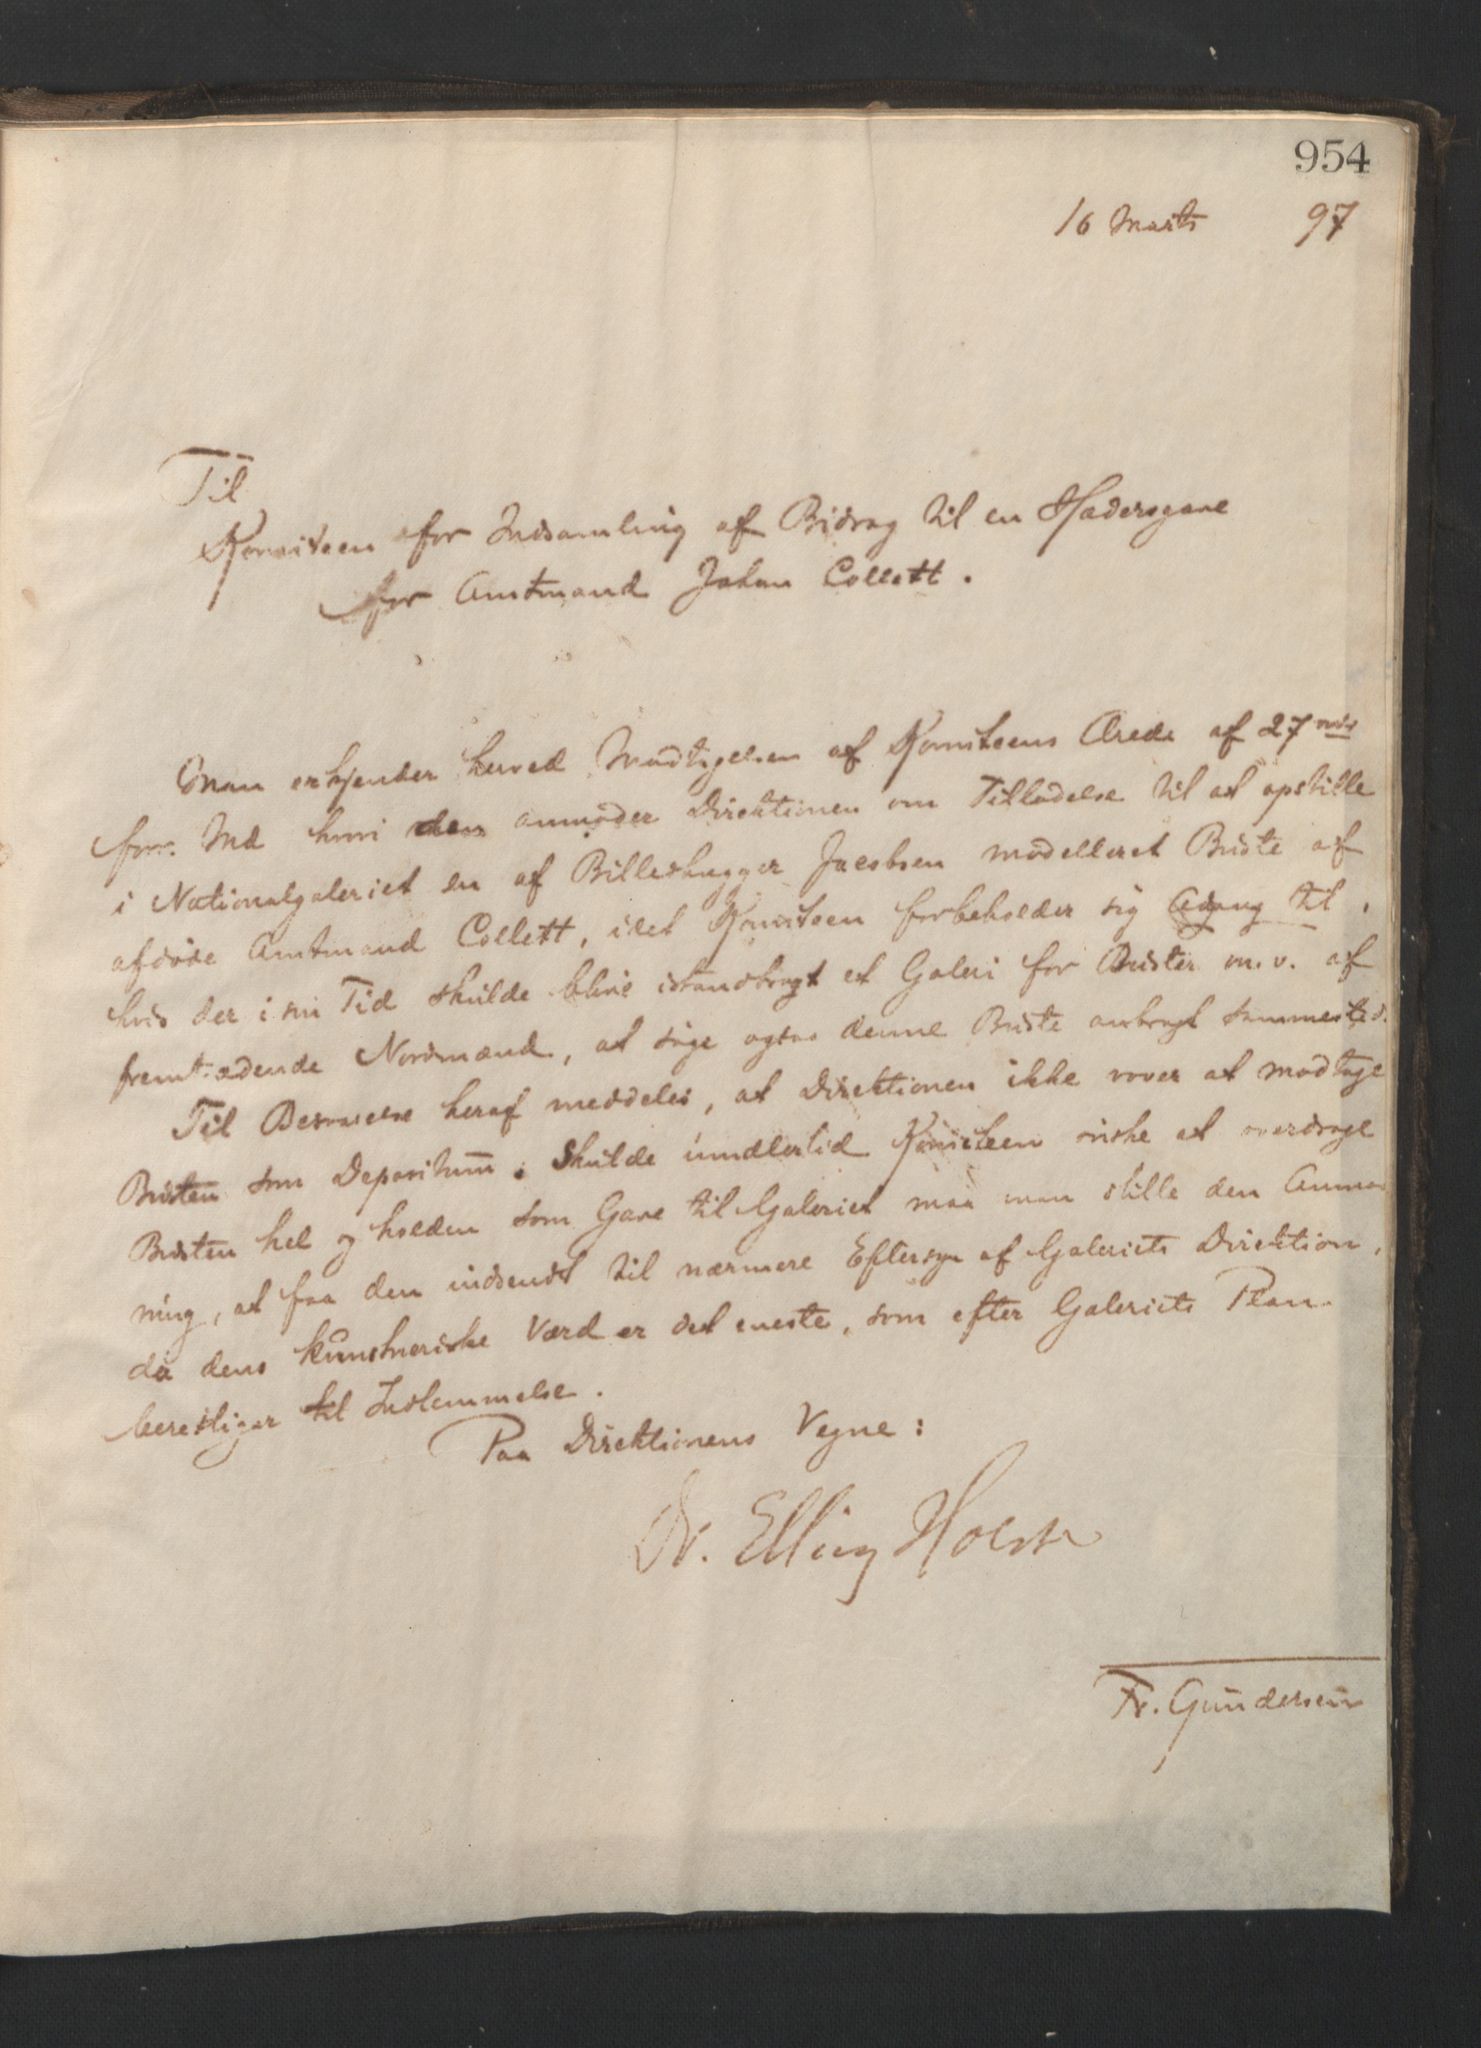 954
16 Marts 97
Til
Komiteen for Indsamling af Bidrag til en Hædersgave
for Amtmand Johan Collett.
Man erkjender herved Modtagelsen af Komiteens Ærede af 27
forr. Md hvori den anmoder Direktionen om Tilladelse til at opstille
i Nationalgaleriet en af Billedhugger Jacobsen modelleret Buste af
afdøde Amtmand Collett, idet Komiteen forbeholder sig Adgang til,
hvis der i sin Tid skulde blive istandbragt et Galeri for Buster m.v. af
fremtrædende Nordmænd, at søge ogsaa denne Buste anbragt sammesteds.
Til Besvarelse heraf meddeles, at Direktionen ikke vover at modtage
Busten som Depositum. Skulde imidlertid Komiteen ønske at overdrage
Busten hel og holden som Gave til Galeriet maa man stille den Anmod
ning, at faa den indsendt til nærmere Eftersyn af Galeriets Direktion,
da dens kunstneriske Værd er det eneste, som efter Galeriets Plan
berettiger til Indlemmelse.
Paa Direktionens Vegne:
Dr. Elling Holst
Fr. Gundersen